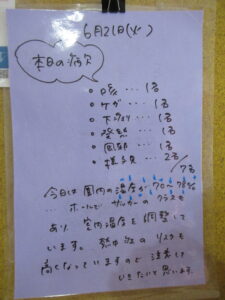 6月21日(火)
本日の病欠
○ … 1名
○ ケガ … 1名
○ 下痢 … 1名
○ 発熱 … 1名
○ 風邪 … 1名
○ 様子見 … 2名
7名
今日は園内の湿度が70〜78%
… ホールでサッカーのクラスも
あり、室内温度を調整して
います。熱中症のリスクも
高くなっていますので注意して
いきたいと思います。